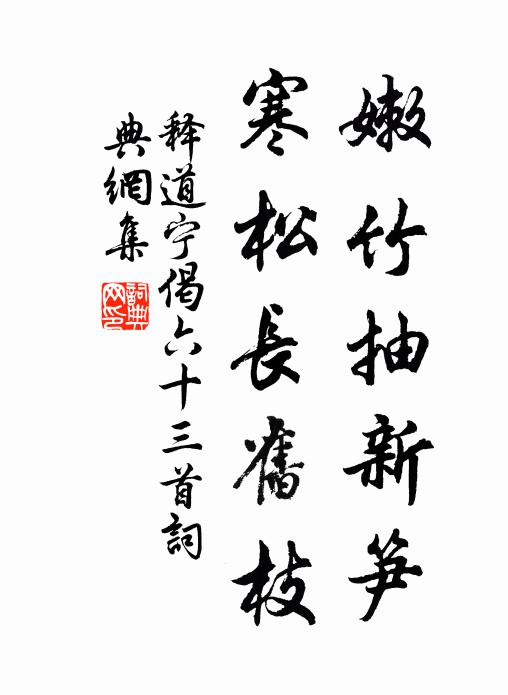 嫩竹抽新笋
寒松長舊枝
释道宁偈六十三首詞
典網集
詞典网印